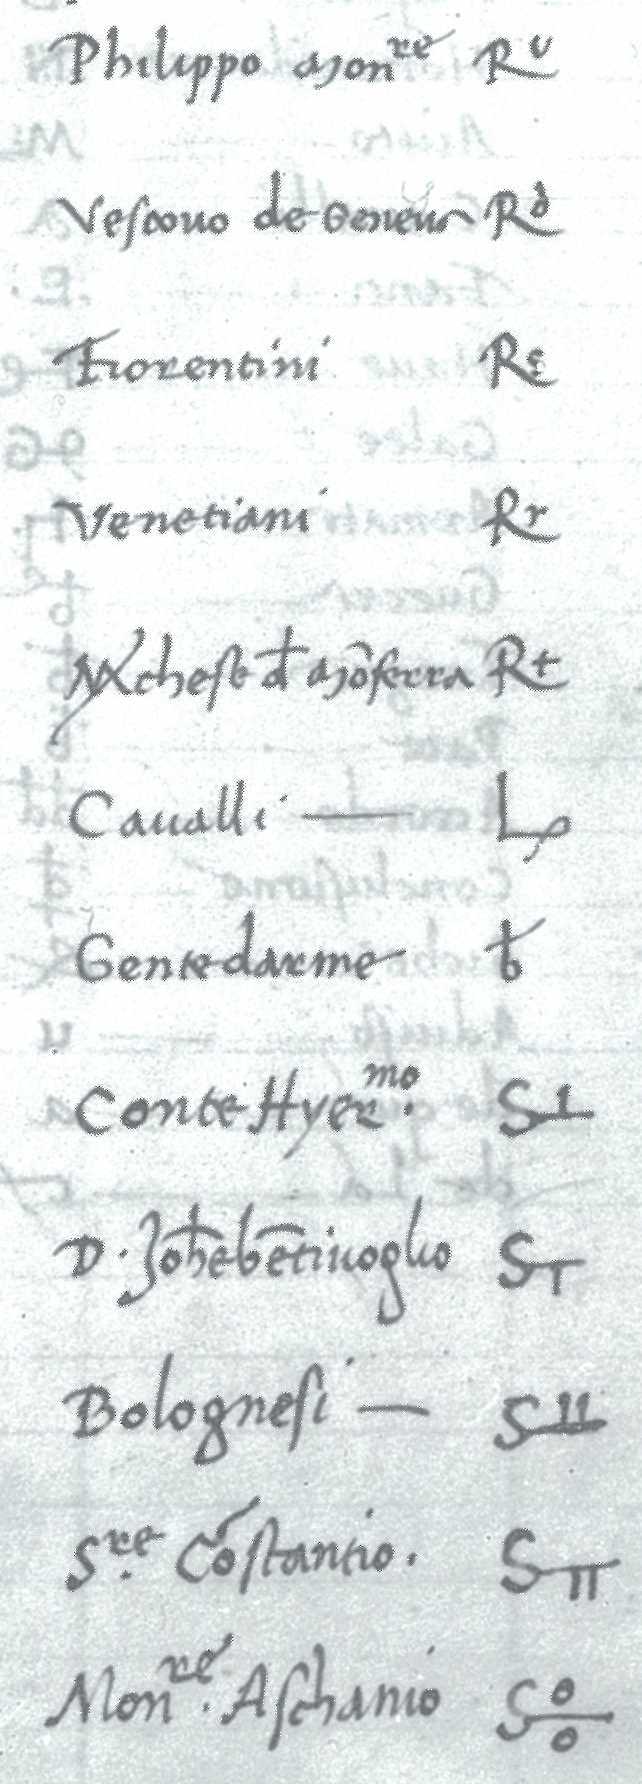 Philippo Monre Rv
Vescouo de Geneua Rd
Fiorentini Re
Venetiani Rr
Mchese d Mōferra Rt
Caualli — L
Gentedarme t
Conte Hyermo. S1
D. Johe bētiuoglio ST
Bolognesi — S11
Sre. Cōstantio. SII
Monre. Aschanio S